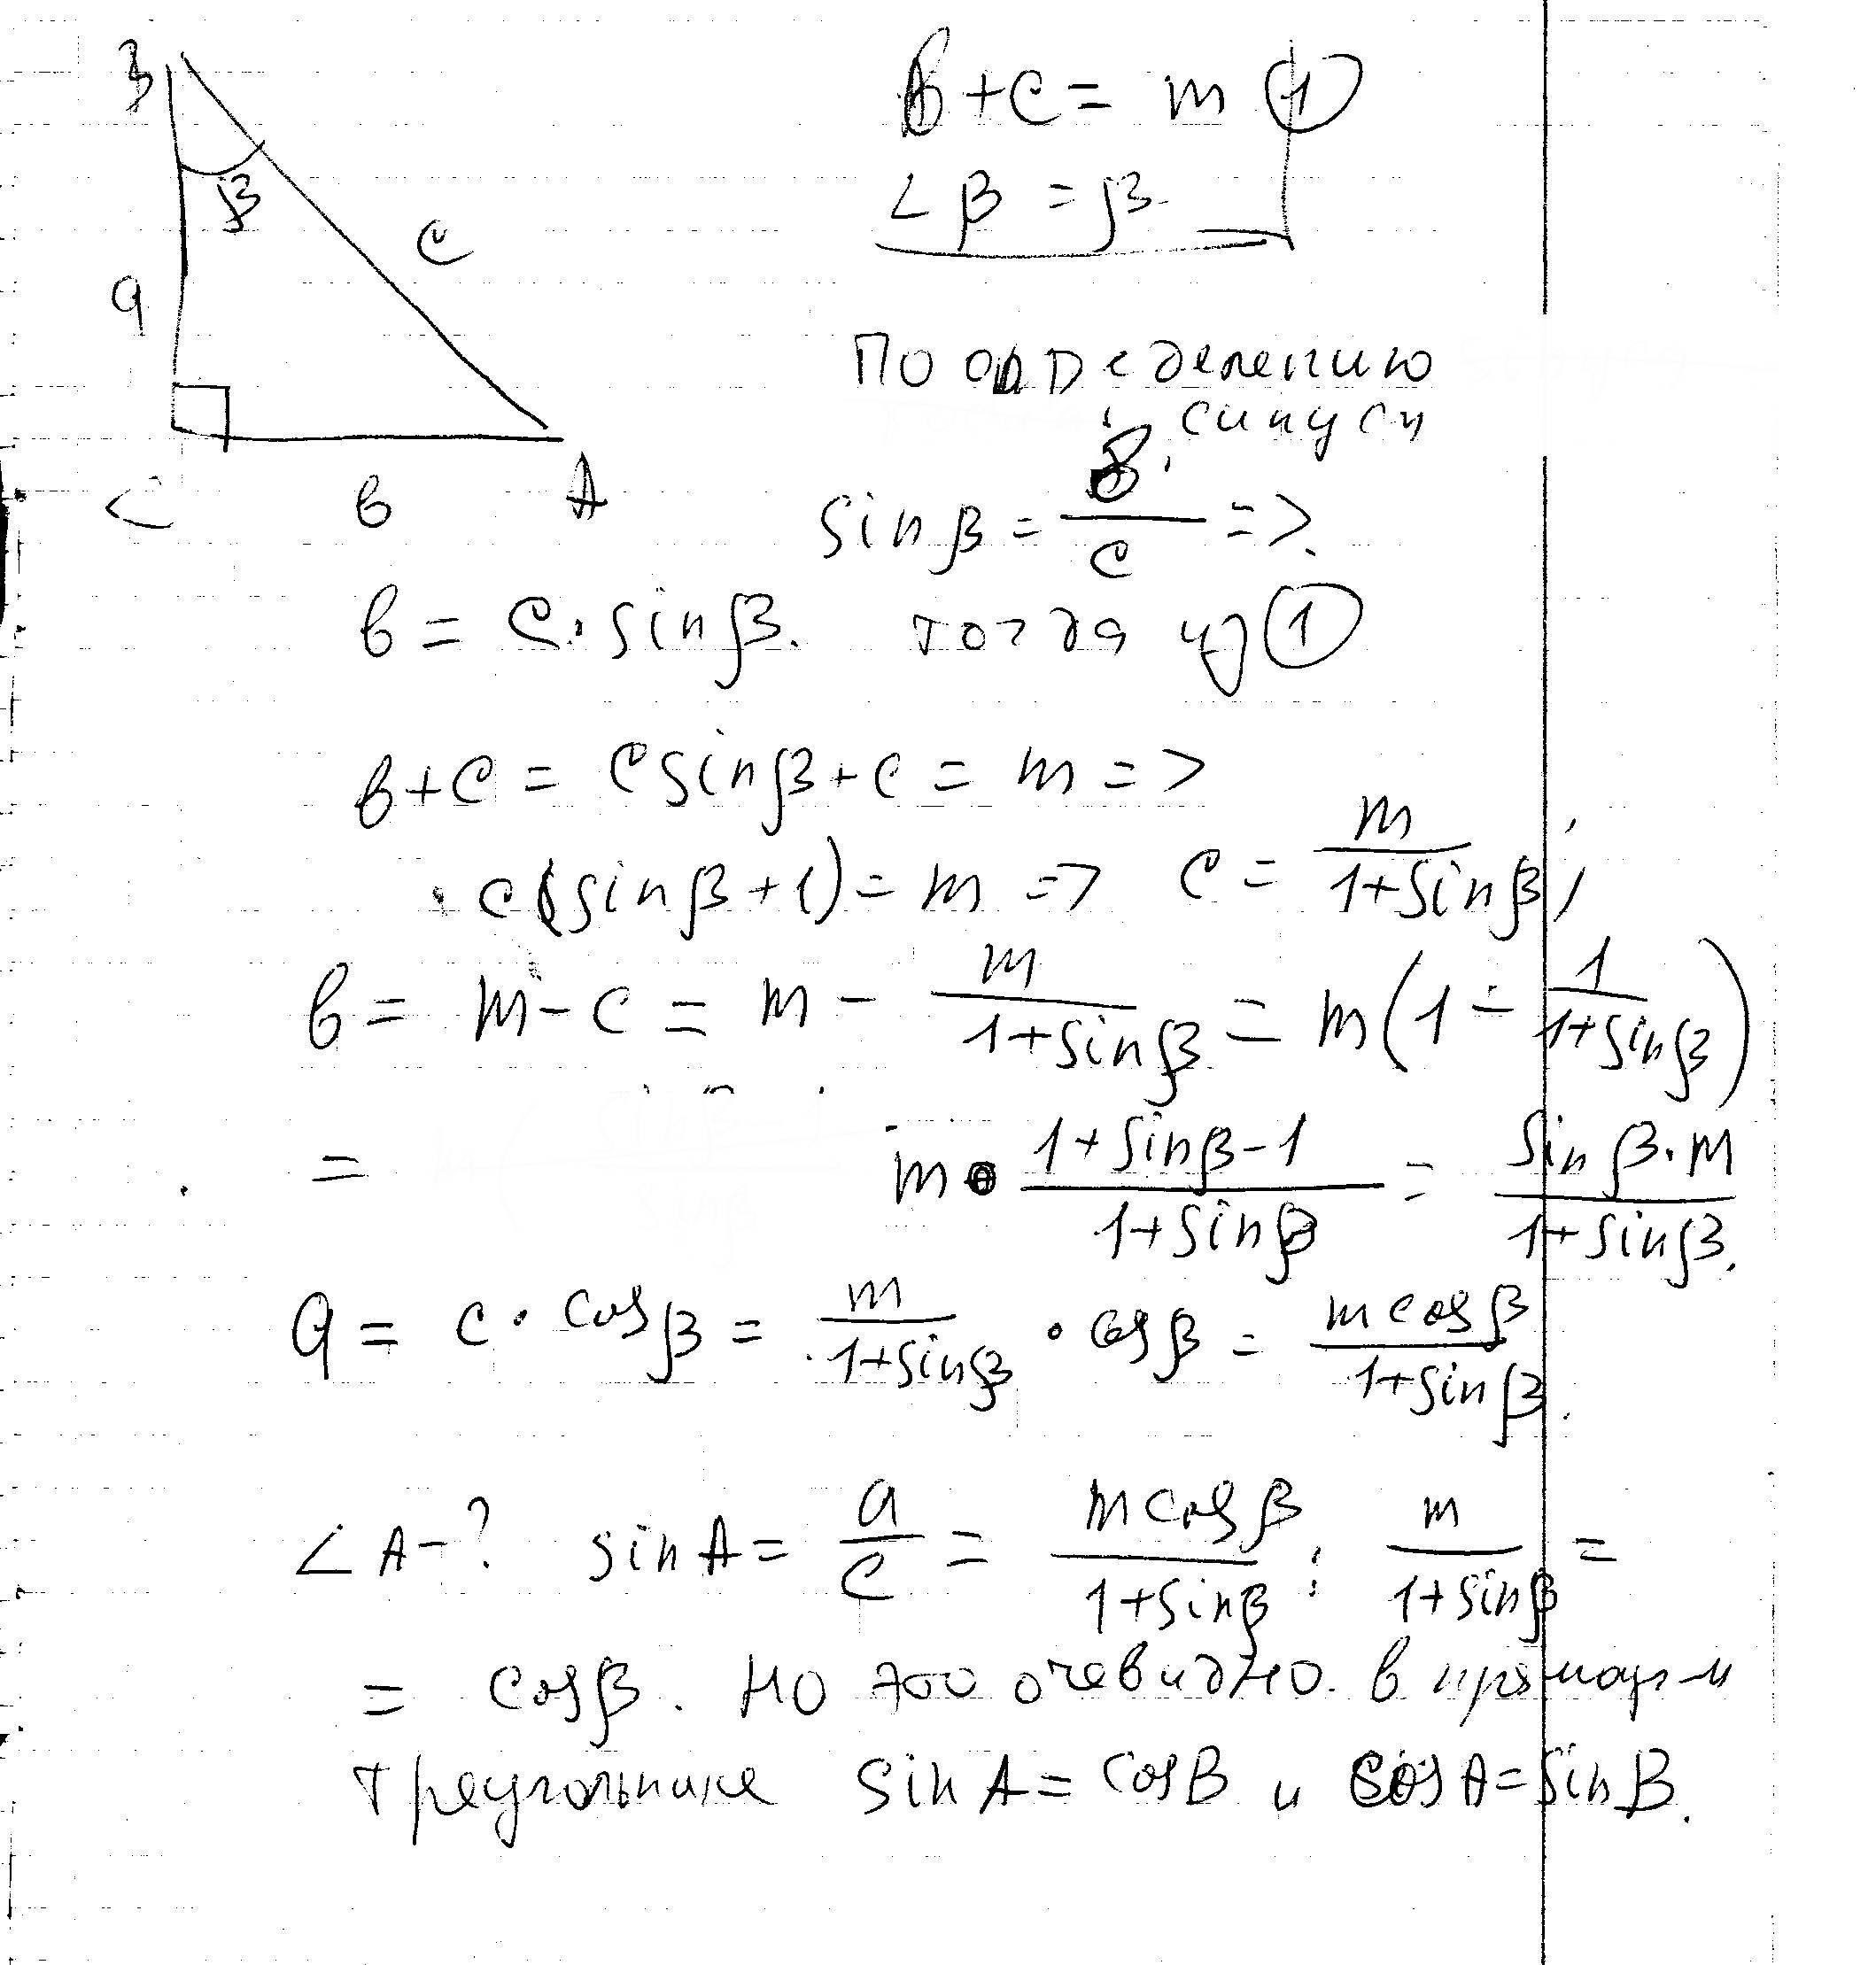 B
β
c
a
C
b
A
b + c = m ①
∠β = β
По определению
синуса
sin β = b/c =>
b = c · sin β. тогда из ①
b + c = c sin β + c = m =>
c(sin β + 1) = m => c = m/(1 + sin β);
b = m - c = m - m/(1 + sin β) = m(1 - 1/(1 + sin β))
= m · (1 + sin β - 1)/(1 + sin β) = (sin β · m)/(1 + sin β).
a = c · cos β = m/(1 + sin β) · cos β = (m cos β)/(1 + sin β).
∠A - ? sin A = a/c = (m cos β)/(1 + sin β) : m/(1 + sin β) =
= cos β. но это очевидно. в
треугольнике sin A = cos B и cos A = sin B.